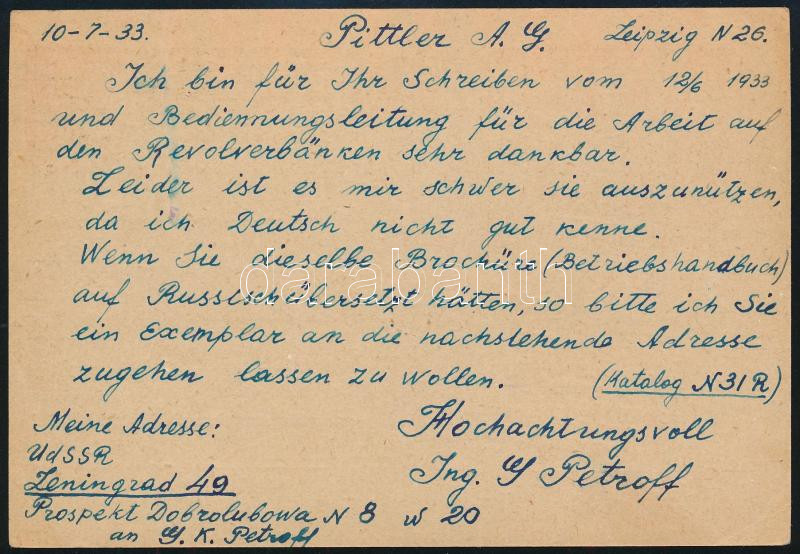 10-7-33. Pittler A. G. Leipzig N 26.
Ich bin für Ihr Schreiben vom 12/6 1933
und Bediennungsleitung für die Arbeit auf
den Revolverbänken sehr dankbar.
Leider ist es mir schwer sie auszunützen,
da ich Deutsch nicht gut kenne.
Wenn Sie dieselbe Brochüre (Betriebshandbuch)
auf Russisch übersetzt hätten, so bitte ich Sie
ein Exemplar an die nachstehende Adresse
zugehen lassen zu wollen. (Katalog N 31 R)
Meine Adresse: Hochachtungsvoll
UdSSR Ing. G Petroff
Leningrad 49
Prospekt Dobrolubowa N 8 w 20
an G. K. Petroff
darabanth